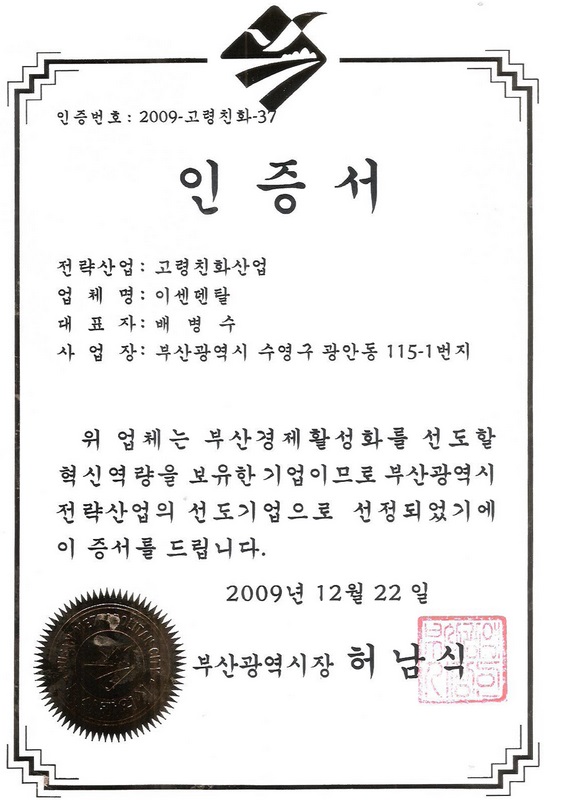 인증번호 : 2009-고령친화-37
인 증 서
전략산업 : 고령친화산업
업 체 명 : 이센덴탈
대 표 자 : 배 병 수
사 업 장 : 부산광역시 수영구 광안동 115-1번지
위 업체는 부산경제활성화를 선도할
혁신역량을 보유한 기업이므로 부산광역시
전략산업의 선도기업으로 선정되었기에
이 증서를 드립니다.
2009년 12월 22 일
부산광역시장 허 남 식